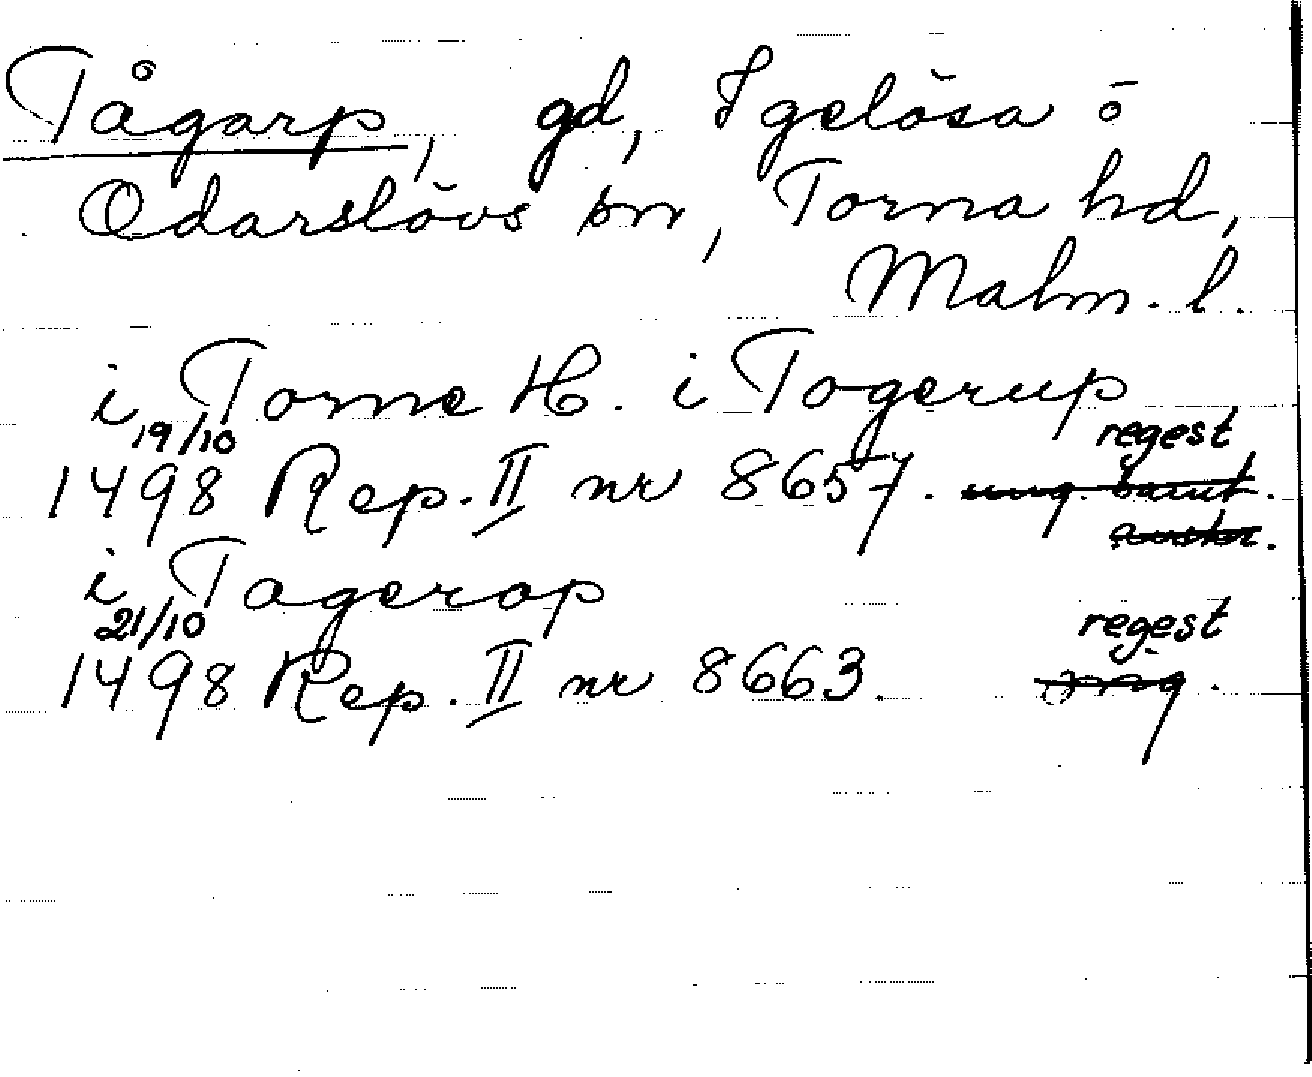 Tågarp, gd, Igelösa o
Odarslövs sn, Torna hd,
Malm. l.
i Torne H. i Togerup
19/10 regest
1498 Rep. II nr 8657.
i Tagerop
21/10 regest
1498 Rep. II nr 8663.